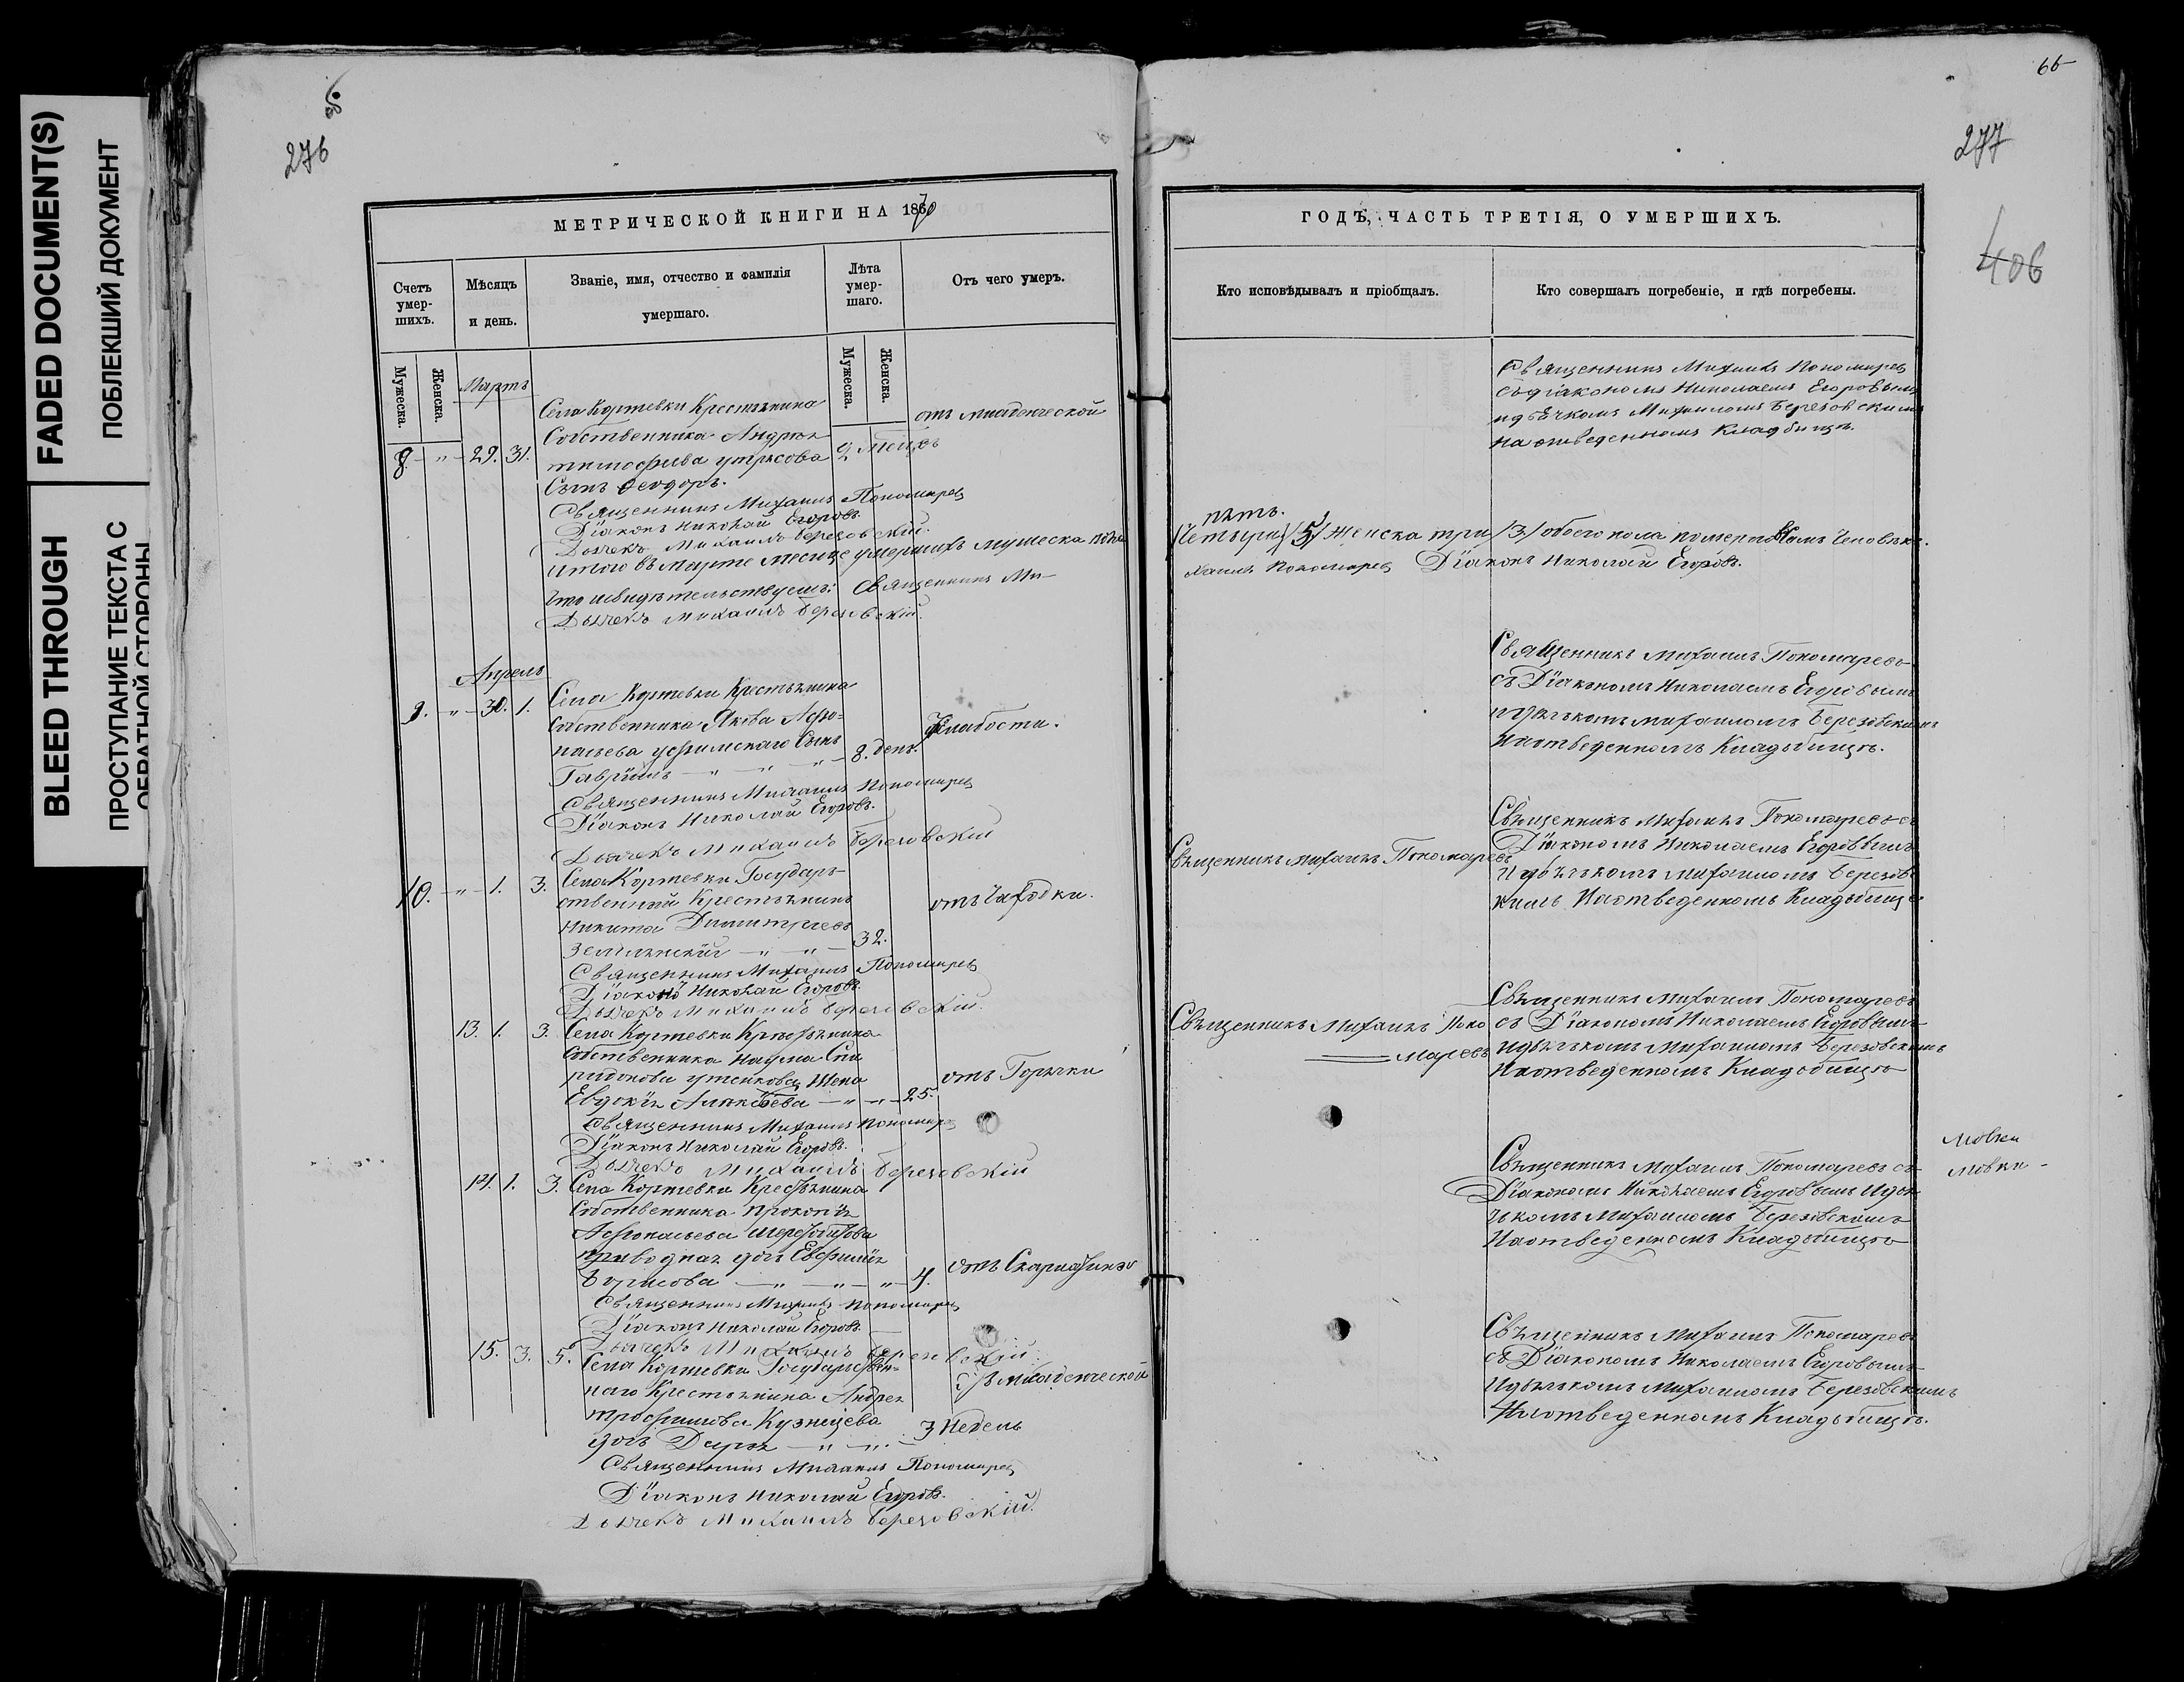 FADED DOCUMENT(S)
ПОБЛЕКШИЙ ДОКУМЕНТ
BLEED THROUGH
ПРОСТУПАНИЕ ТЕКСТА С
ОБРАТНОЙ СТОРОНЫ
276
МЕТРИЧЕСКОЙ КНИГИ НА 1870
Счетъ умер-шихъ.
Мѣсяцъ и день.
Званіе, имя, отчество и фамилія умершаго.
Лѣта умер-шаго.
Отъ чего умеръ.
Мужеска.
Женска.
Мужеска.
Женска.
Мартъ
Села Кортевки Крестьянина
отъ младенческой
Собственника Андрея
8. — " — 29. 31.
тимофѣева
Сынъ Ѳеодоръ.
Священникъ Михаилъ Пономаревъ
Діаконъ Николай Егоровъ.
Дьячекъ Михаилъ Березовскій.
Итого въ Марте месяце умершихъ мужеска пола
Священникъ Ми-
Дьячекъ Михаилъ Березовскій.
Апрель
9. — " — 30. 1.
Села Кортевки Крестьянина
Собственника Якова Афо-
насьева Сынъ
8. день
слабости.
Гавріилъ — " — " — " —
Священникъ Михаилъ Пономаревъ
Діаконъ Николай Егоровъ.
Дьячекъ Михаилъ Березовскій
10. — " — 1. 3.
Села Кортевки Государ-
ственный Крестьянинъ
отъ Чахотки.
Никита Димитріевъ
— " — " — 32.
Священникъ Михаилъ Пономаревъ
Діаконъ Николай Егоровъ.
Дьячекъ Михаилъ Березовскій.
13. 1. 3.
Села Кортевки Крестьянина
Собственника Наума Спи
ридонова Жена
отъ Горячки
Евдокія — " — " — 25.
Священникъ Михаилъ Пономаревъ
Діаконъ Николай Егоровъ.
Дьячекъ Михаилъ Березовскій
14. 1. 3.
Села Кортевки Крестьянина
Собственника Прокопія
Афонасьева
дочь Евфимія
Борисова — " — " — " — 4.
отъ
Священникъ Михаилъ Пономаревъ
Діаконъ Николай Егоровъ.
Дьячекъ Михаилъ Березовскій.
15. 3. 5.
Села Кортевки Государствен-
наго Крестьянина Андрея
младенческой
трофимова Кузнецева
дочь Дарья — " — " — 3 недель
Священникъ Михаилъ Пономаревъ
Діаконъ Николай Егоровъ.
Дьячекъ Михаилъ Березовскій.
66
277
406
ГОДЪ, ЧАСТЬ ТРЕТІЯ, О УМЕРШИХЪ.
Кто исповѣдывалъ и пріобщалъ.
Кто совершалъ погребеніе, и гдѣ погребены.
Священникъ Михаилъ Пономаревъ
съ діакономъ Николаемъ Егоровымъ
и дьячкомъ Михаиломъ Березовскимъ
на отведенномъ Кладбищѣ.
пять.
(Четыри) (5) Женска три (3) обоего пола
хаилъ Пономаревъ Діаконъ Николай Егоровъ.
Священникъ Михаилъ Пономаревъ
съ Діакономъ Николаемъ Егоровымъ
и дьячкомъ Михаиломъ Березовскимъ
На отведенномъ Кладьбищѣ.
Священникъ Михаилъ Пономаревъ
Священникъ Михаилъ Пономаревъ съ
Діакономъ Николаемъ Егоровымъ
И дьячкомъ Михаиломъ Березов
кимъ На отведенномъ Кладьбище
Священникъ Михаилъ Поно
маревъ
Священникъ Михаилъ Пономаревъ
съ Діакономъ Николаемъ Егоровымъ
И дьячкомъ Михаиломъ Березовскимъ
На отведенномъ Кладьбищѣ
Священникъ Михаилъ Пономаревъ съ
Діакономъ Николаемъ Егоровымъ И дья
чкомъ Михаиломъ Березовскимъ
На отведенномъ Кладьбищѣ
Священникъ Михаилъ Пономаревъ
съ Діакономъ Николаемъ Егоровымъ
И дьячкомъ Михаиломъ Березовскимъ
На отведенномъ Кладьбищѣ.